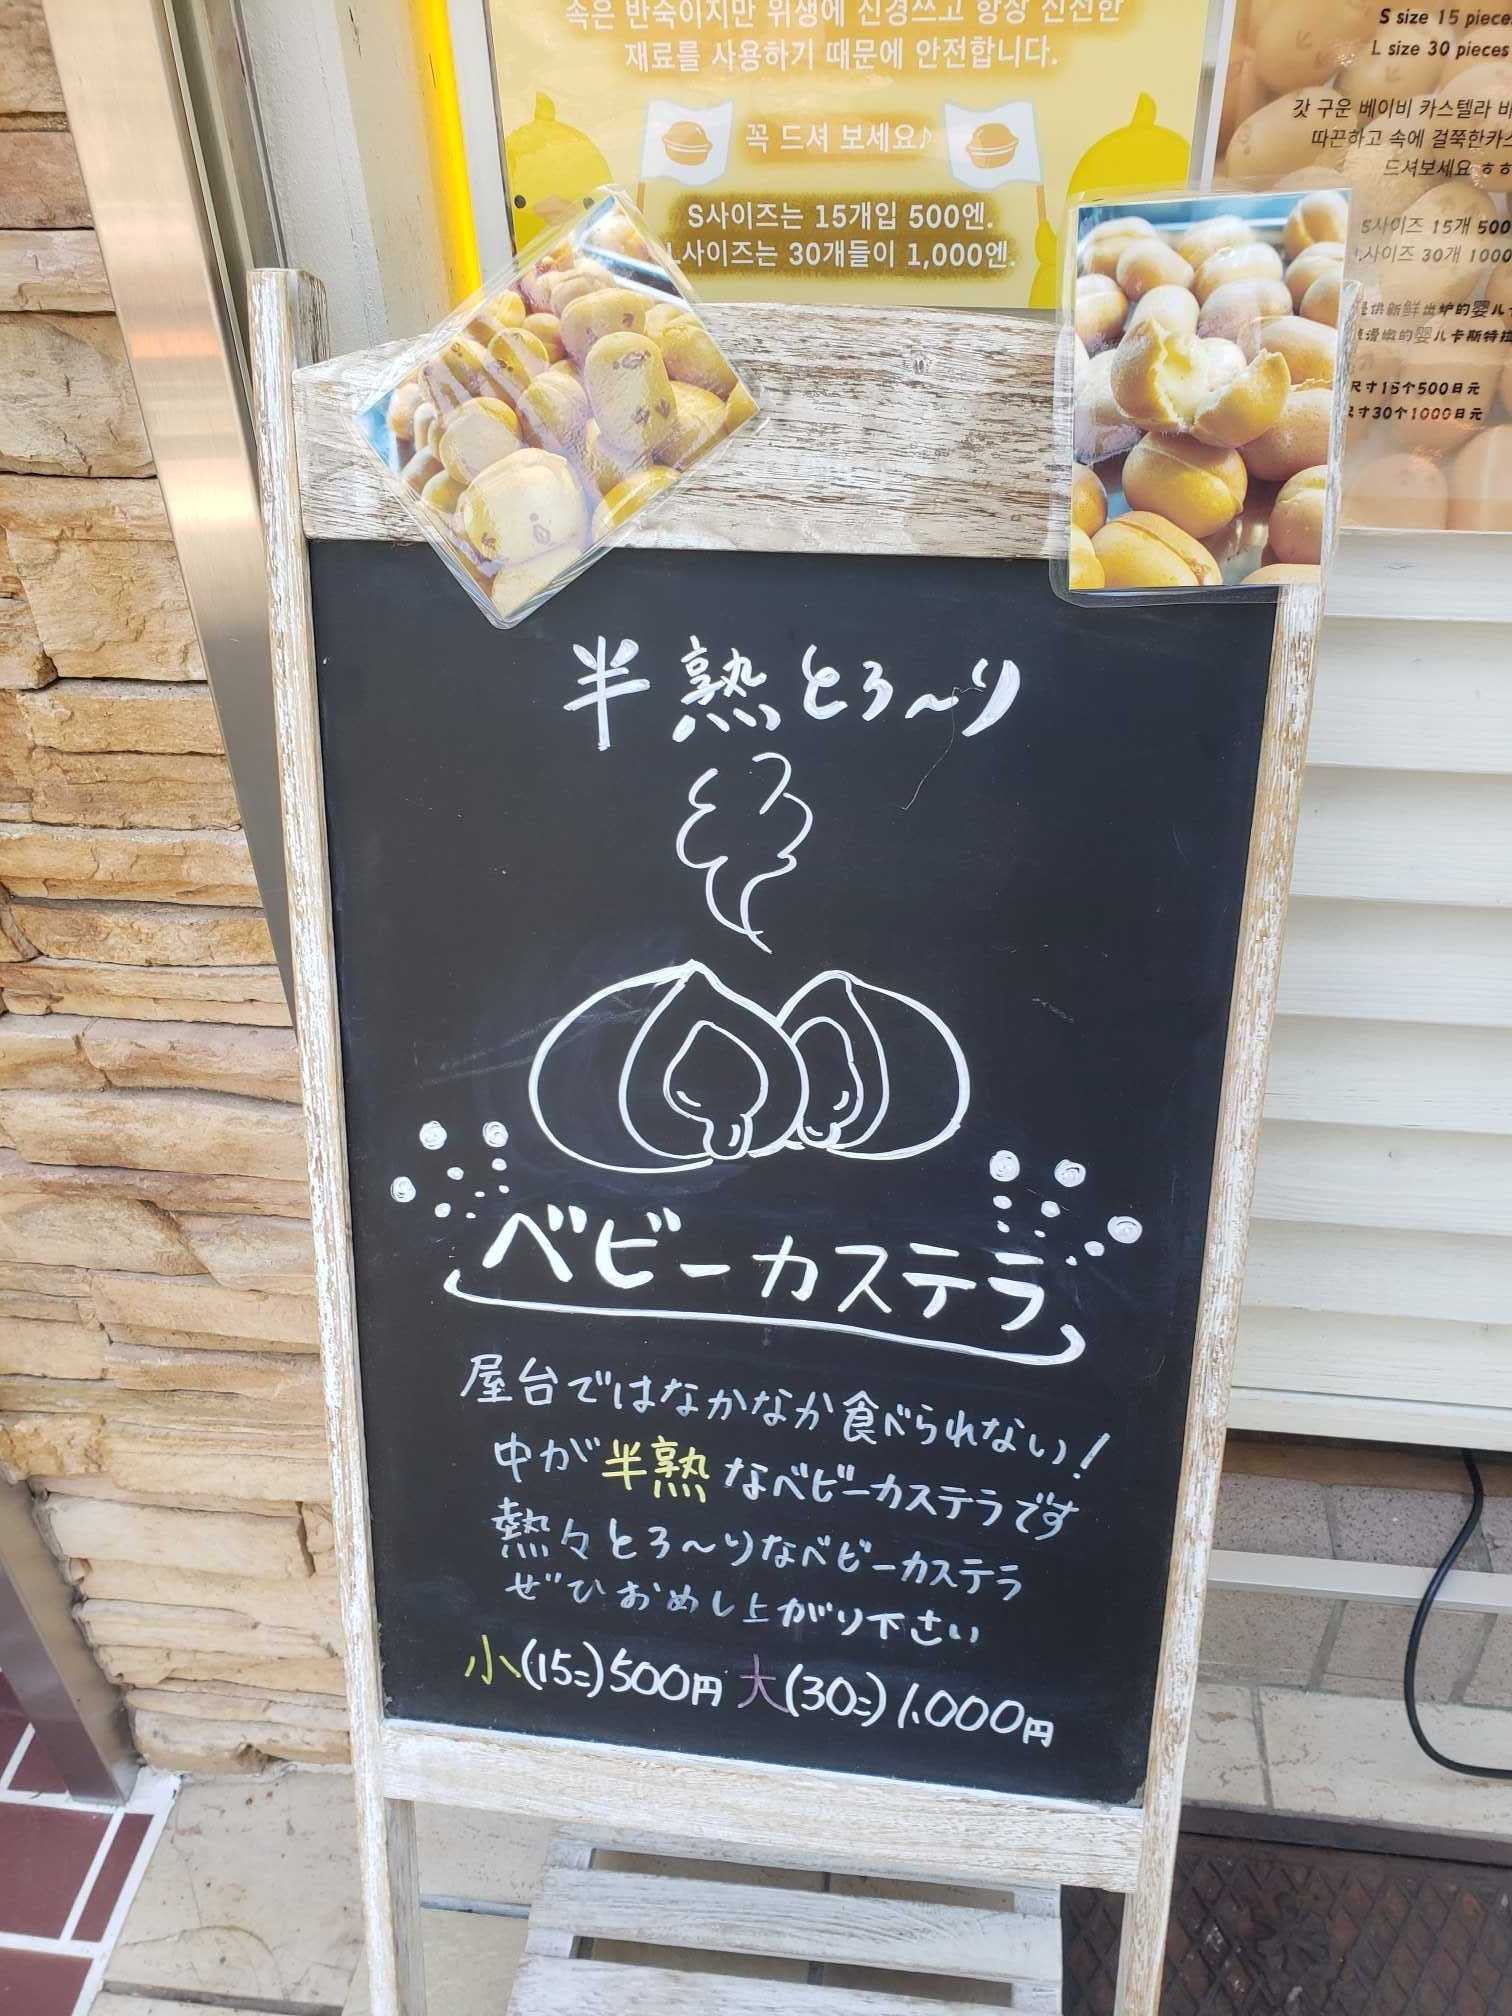 속은 반숙이지만 위생에 신경쓰고 항상 신선한
재료를 사용하기 때문에 안전합니다.
꼭 드셔 보세요♪
S사이즈는 15개입 500엔.
L사이즈는 30개들이 1,000엔.
S size 15 piece
L size 30 pieces
갓 구운 베이비 카스텔라
따끈하고 속에 걸쭉한카스
드셔보세요 ㅎㅎ
S사이즈 15개 500
사이즈 30개 1000
供新鲜出炉的婴儿
滑嫩的婴儿卡斯特拉
尺寸15个500日元
寸30个1000日元
半熟とろ〜り
ベビーカステラ
屋台ではなかなか食べられない!
中が半熟なベビーカステラです
熱々とろ〜りなベビーカステラ
ぜひおめし上がり下さい
小(15コ)500円 大(30コ)1.000円